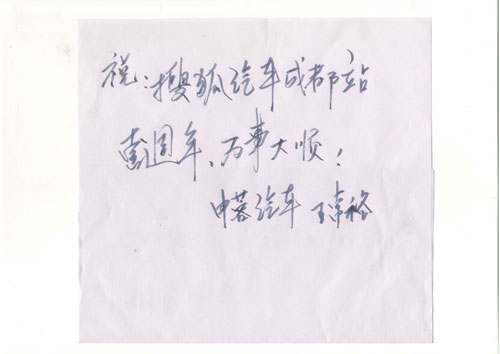 祝:搜狐汽车成都站
壹周年、万事大顺!
中蓉汽车 王